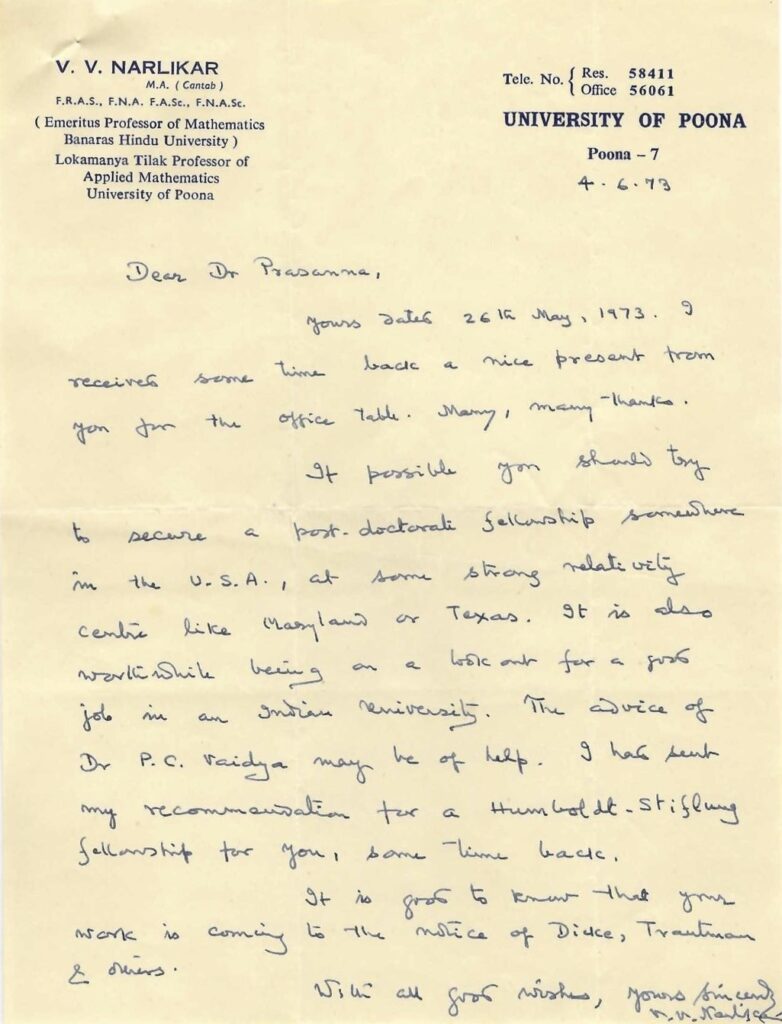 V. V. NARLIKAR
M.A. ( Cantab )
F.R.A.S., F.N.A. F.A.Sc., F.N.A.Sc.
( Emeritus Professor of Mathematics
Banaras Hindu University )
Lokamanya Tilak Professor of
Applied Mathematics
University of Poona
Tele. No. { Res. 58411
Office 56061
UNIVERSITY OF POONA
Poona - 7
4 . 6 . 73
Dear Dr Prasanna,
Yours dated 26th May, 1973. I
received some time back a nice present from
you for the office table. Many, many thanks.
If possible you should try
to secure a post-doctorate fellowship somewhere
in the U.S.A., at some strong relativity
centre like Maryland or Texas. It is also
worthwhile being on a look out for a good
job in an Indian University. The advice of
Dr P.C. Vaidya may be of help. I had sent
my recommendation for a Humboldt-Stiftung
fellowship for you, some time back.
It is good to know that your
work is coming to the notice of Dicke, Trautman
& others.
With all good wishes, yours sincerely
V. V. Narlikar